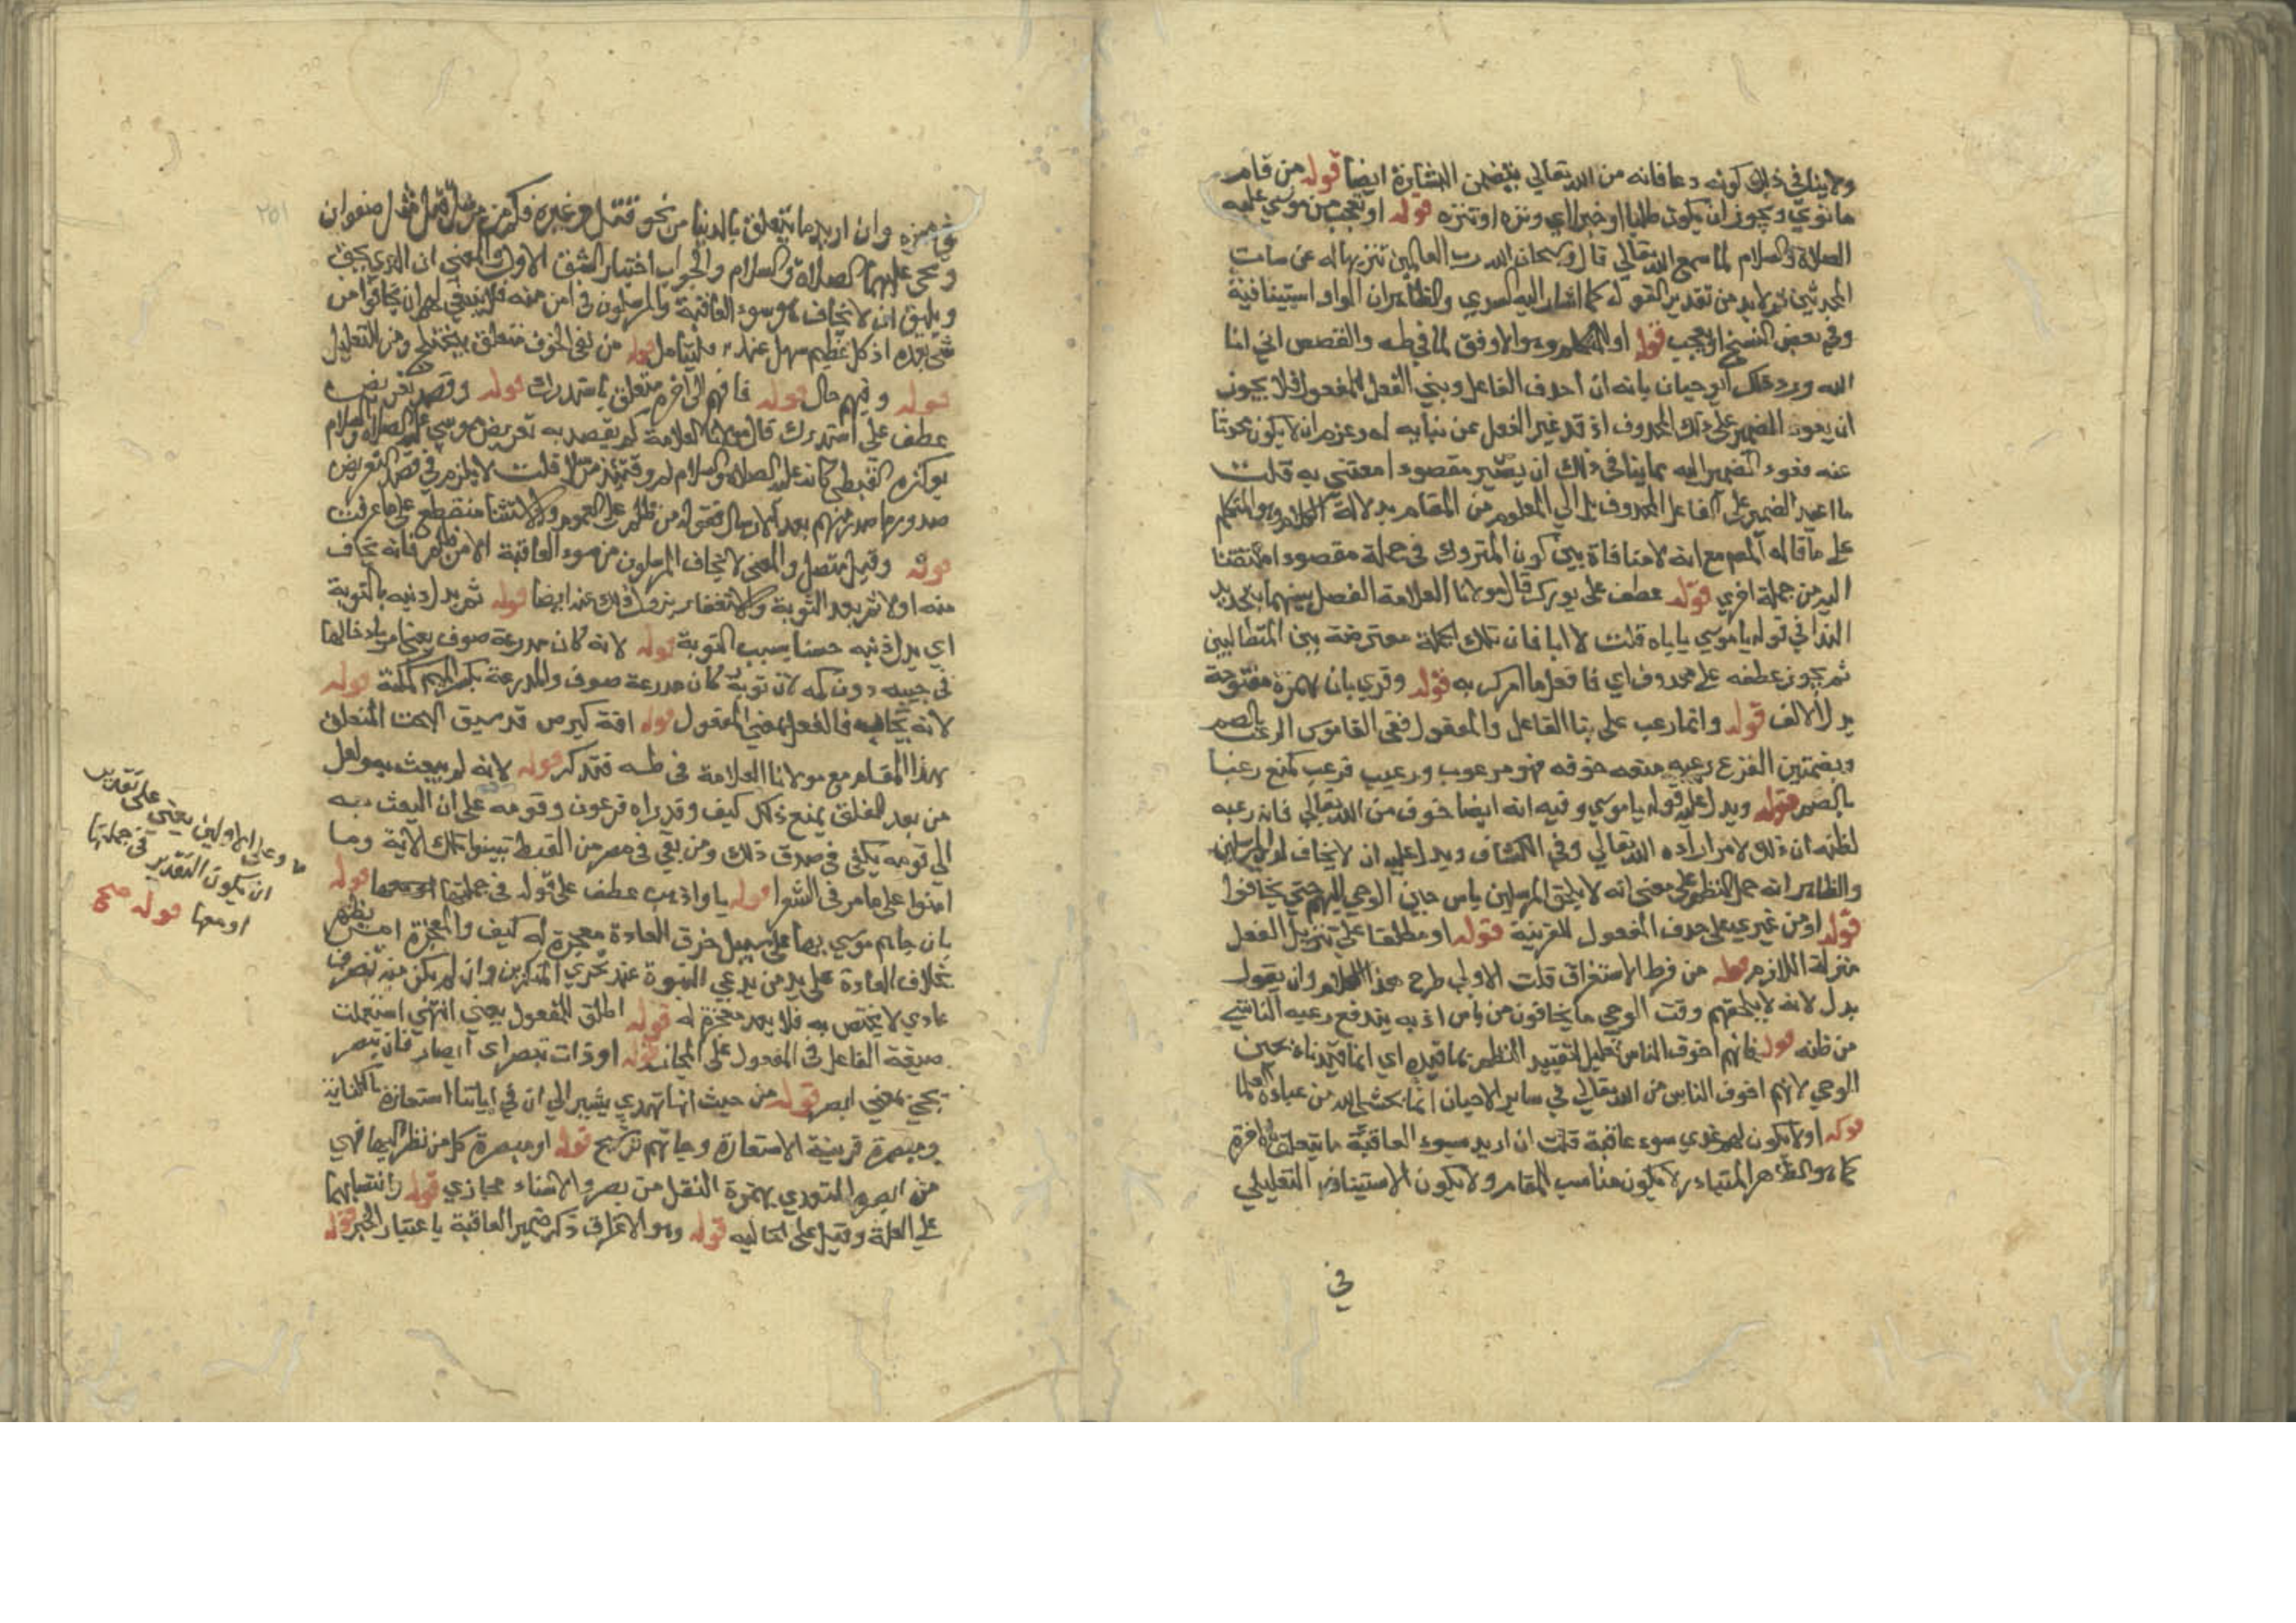 ولا ينافي ذلك كونه دعا فانه من الله تعالي يتضمن البشارة ايضا قوله من تمام
ما نودي ويجوز ان يكون طلبا او خبرا اي ونزه او تنزه قوله او تعجب من موسي عليه
الصلاة والسلام لما سمع الله تعالي قال وسبحان الله رب العالمين تنزيها له عن سمات
المحدثين ولا بد من تقدير القول كما اشار اليه السدي والظاهر ان الواو استينافية
وفي بعض النسخ او تعجب قوله او للمتكلم وهو الاوفق لما في طه والقصص اني انا
الله ورد ذلك ابو حيان بانه ان احذف الفاعل وبني الفعل للمفعول فلا يجوز
ان يعود الضمير علي ذلك المحذوف اذ قد غير الفعل عن بنائه له وعزم ان لا يكون محدثا
عنه فعود الضمير اليه مما ينافي ذلك ان يصير مقصودا معتني به قلت
ما اعيد الضمير علي الفاعل المحذوف بل الي المعلوم من المقام بدلالة الكلام وهو المتكلم
علي ما قاله المص مع انه لا منافاة بين كون المتروك في جملة مقصودا ملتفتا
اليه من جملة اخري قوله عطف علي بورك قال مولانا العلامة الفصل بينهما بتجديد
الندا في قوله يا موسي ياباه قلت لا ابا فان تلك الجملة معترضة بين المتعاطفين
ثم يجوز عطفه علي محذوف اي فافعل ما امرك به قوله وقري بان بهمزة مفتوحة
بدل الالف قوله وانما رعب علي بنا الفاعل والمفعول ففي القاموس الرعب بالضم
وبضمتين الفزع رعبه منعه خوفه فهو مرعوب ورعيب فرعب كمنع رعبا
بالضم قوله ويدل عليه قوله يا موسي وفيه انه ايضا خوف من الله تعالي فان رعبه
لظنه ان ذلك لامر اراده الله تعالي وفي الكشاف ويدل عليه ان لا يخاف لدي المرسلين
والظاهر انه حمل النظم علي معني انه لا يلحق المرسلين باس حين الوحي اليهم حتي يخافوا
قوله او من غيري علي حذف المفعول للقرينة قوله او مطلقا علي تنزيل الفعل
منزلة اللازم قوله من فرط الاستغراق قلت الاولي طرح هذا الكلام وان يقول
بدل لانه لا يلحقهم وقت الوحي ما يخافون من باس اذ به يندفع رعبه الناشي
من ظنه قوله فانهم اخوف الناس تعليل لتقييد النظم بما قيده اي انما قيدناه بحين
الوحي لانهم اخوف الناس من الله تعالي في ساير الاحيان انما يخشي الله من عباده العلما
قوله او لا يكون لهم عندي سوء عاقبة قلت ان اريد بسوء العاقبة ما يتعلق بالاخرة
كما هو الظاهر المتبادر لا يكون مناسب المقام ولا يكون الاستيناف التعليلي
في
٢٥١
في محزه وان اريد ما يتعلق بالدنيا من نحو قتل وغيره فكم من مرسل قتل مثل
ويحيي عليهما الصلاة والسلام والجواب اختيار الشق الاول والمعني ان الذي يحق
ويليق ان لا يخاف هو سوء العاقبة والمرسلون في امن منه فلا ينبغي لهم ان يخافوا من
شي بعده اذ كل عظيم سهل عنده فليتامل قوله من نفي الخوف متعلق بيختلج ومن للتعليل
قوله وفيهم حال قوله فانهم الي اخره متعلق باستدرك قوله وقصد تعريض
عطف علي استدرك قال مولانا العلامة لم يقصد به تعريض موسي عليه الصلاة والسلام
بوكزه القبطي كانه عليه الصلاة والسلام لم وقتئذ مرسلا قلت لا يلزم في قصد التعريض
صدورها صدر منهم بعد الارسال فقوله من ظلم علي العموم والاستثنا منقطع علي ما عرفت
قوله وقيل متصل والمعني لا يخاف المرسلون من سوء العاقبة الا من ظلم فانه يخاف
منه اولا ثم بعد التوبة والاستغفار يزول ذلك عنه ايضا قوله ثم بدل ذنبه بالتوبة
اي بدل ذنبه حسنا بسبب التوبة قوله لانه كان مدرعة صوف يعني امر بادخالها
في جيبه دون كمه لان ثوبه كان مدرعة صوف والمدرعة بكسر الميم كمكنة قوله
لانه يجاب فالفعل بمعني المفعول قوله افة كبرص قد سبق البحث المتعلق
بهذا المقام مع مولانا العلامة في طه فتذكر قوله لانه لم يبعث به ولعل
من بعد الفلق يمنع ذلك كيف وقد راه فرعون وقومه علي ان البعث به
الي قومه يكفي في صدق ذلك ومن بقي في مصر من القبط تبينوا تلك الاية وما
امنوا علي ما مر في الشعرا قوله يا واذهب عطف علي قوله في جملتها قوله
بان جاهم موسي بها علي سبيل خرق العادة معجزة له كيف والمعجزة امر يظهر
بخلاف العادة علي يد من يدعي النبوة عند تحدي المنكرين وان لم يكن منه تصرف
عادي لا يختص به فلا يعد معجزة له قوله اطلق للمفعول يعني انتهي استعملت
صيغة الفاعل في المفعول علي المجاز قوله او ذات تبصر اي ابصار فان تبصر
يجي بمعني ابصر قوله من حيث انها تهدي يشير الي ان في اياتنا استعارة بالكناية
ومبصرة قرينة الاستعارة وجاتهم ترشيح قوله او مبصرة كل من نظر اليها فهي
من ابصر المتعدي بهمزة النقل من بصر والاسناد مجازي قوله وانتصابهما
علي العلة وقيل علي الحالية قوله وهو الاغراق ذكر ضمير العاقبة باعتبار الخبر قوله
وعلي الاولين يعني علي تقدير
ان يكون التقدير في جملتها
او معها قوله صح